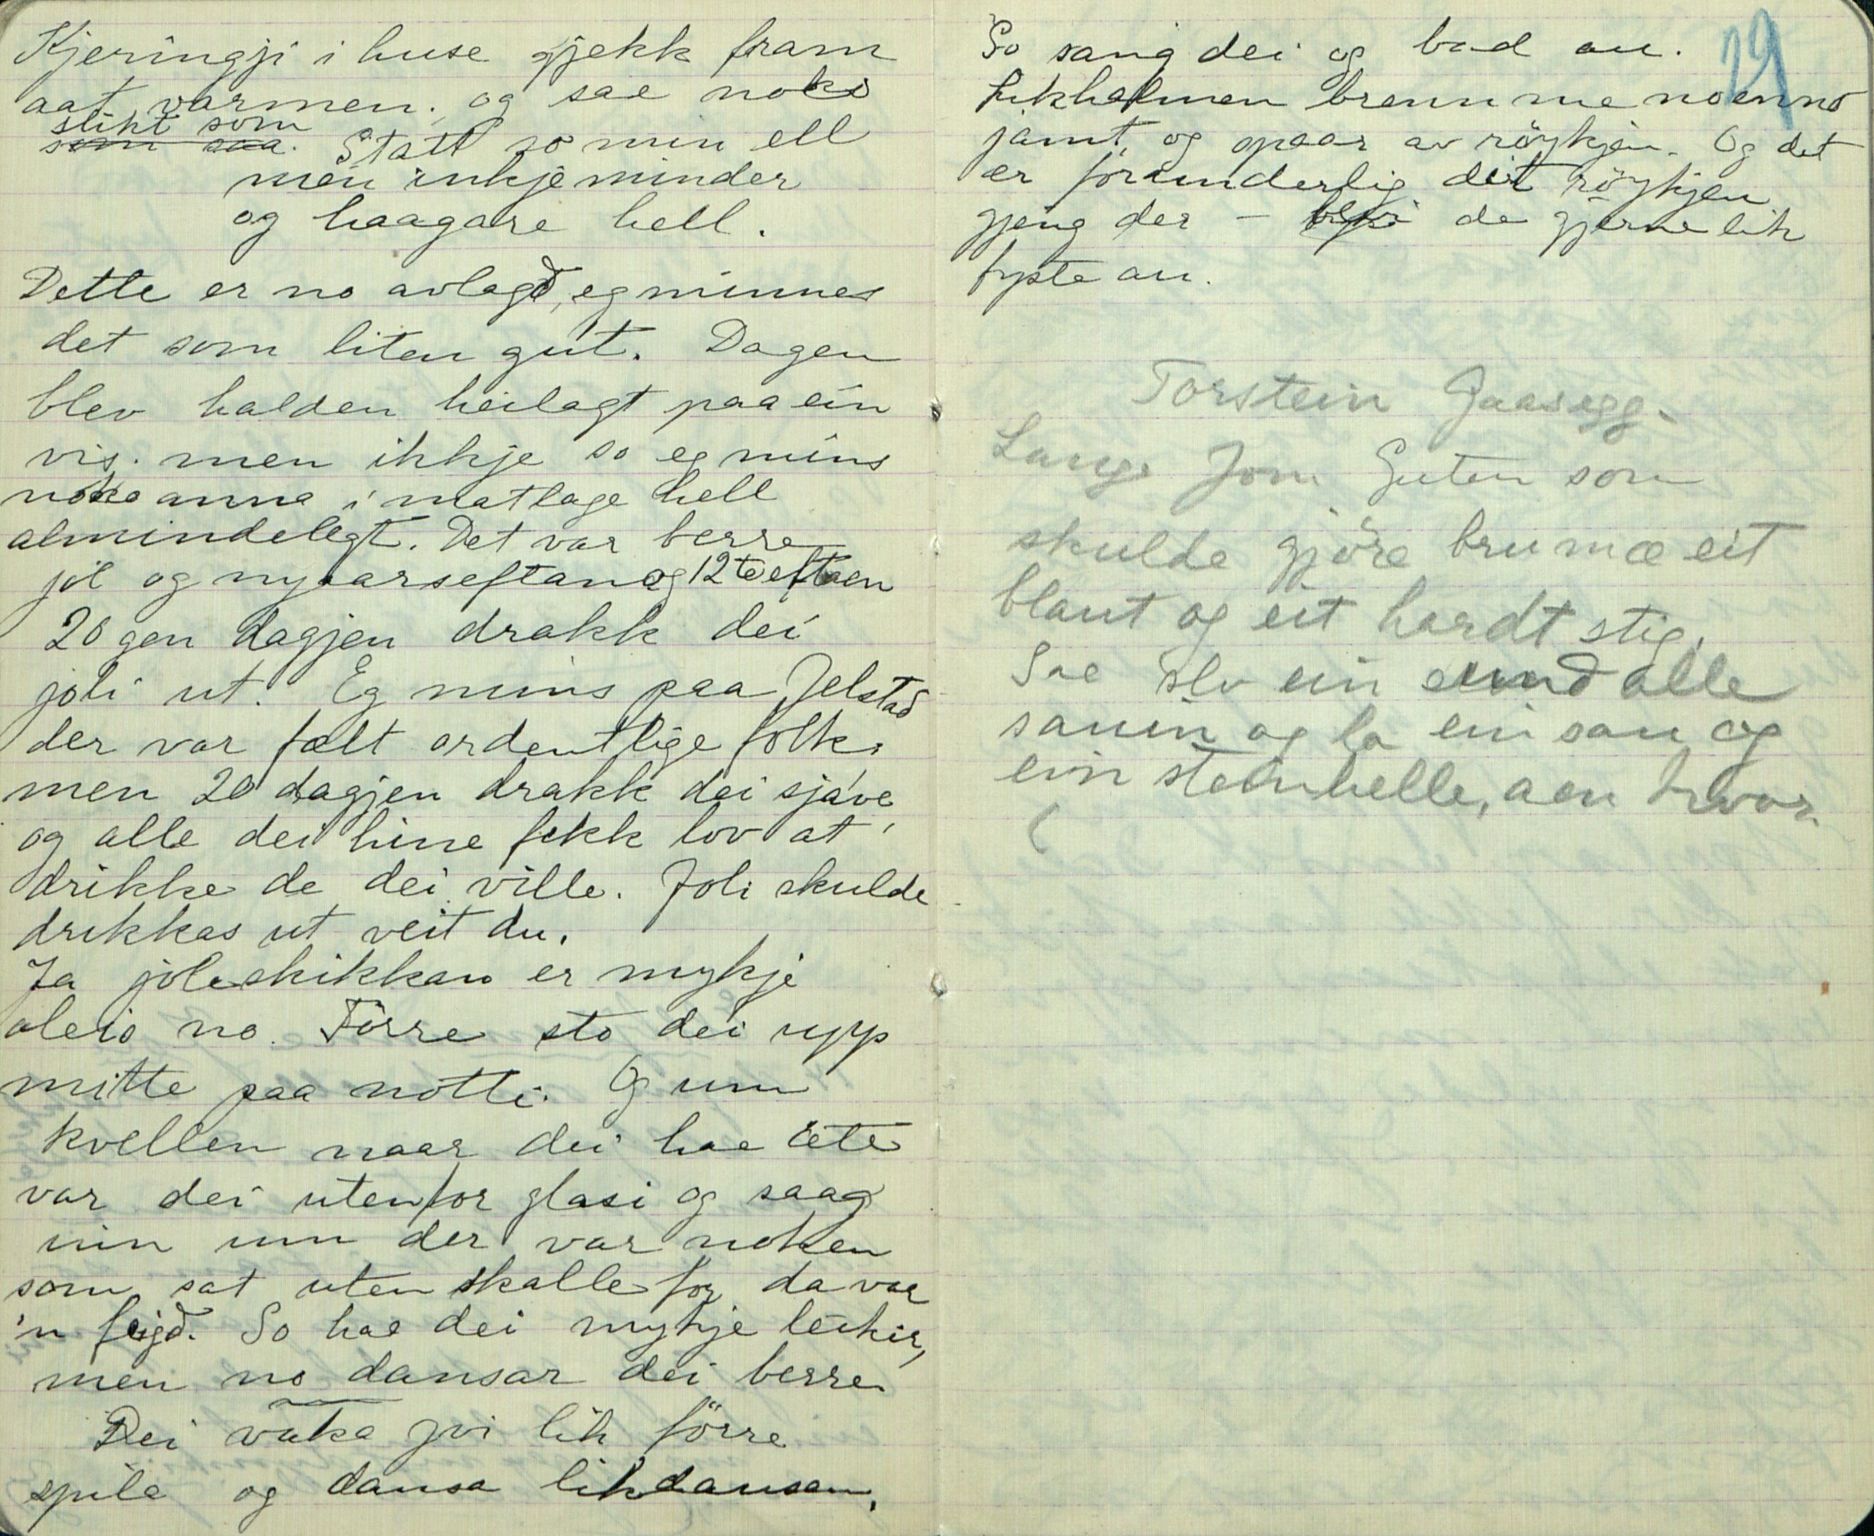 Kjeringji i huse gjekk fram
aat varmen. og sae noko
slikt som
som saa. Statt so min ell
men inkje minder
og haagare hell.
Dette er no avlagð, eg minnes
det som liten gut. Dagen
blev halden heilagt paa ein
vis. men ikkje so eg mins
noko anna i matlage hell
almindelegt. Det var berre
jol og nyaarseftan og 12te eftaen
20gen dagjen drakk dei
joli ut. Eg mins paa Jelstad
der var fælt ordentlige folk,
men 20 dagjen drakk dei sjave
og alle dei hine fekk lov at
drikke de dei ville. Joli skulde
drikkas ut veit du.
Ja joleskikkan er mykje
aleio no. Förre sto dei upp
mitte paa notti. Og um
kvellen naar dei hae ete
var dei utenfor glasi og saag
inn um der var noken
som sat uten skalle for da var
'n feigð. So hae dei mykje leikir,
men no dansar dei berre.
Dei vaka yvi lik förre
spila og dansa likdansen.
29
So sang dei og bad au.
Likhalmen brenn me noenno
jamt, og spaar av röykjen. Og det
er forunderlig dit röykjen
gjeng der – de gjerne lik
fyste au.
Torstein Gaasegg.
Lange Jon Guten som
skulde gjöre bru mæ eit
blaut og eit hardt stig.
Sae slv ein alle
sauin og la ein sau og
ein steinhelle, aen hvor.
(